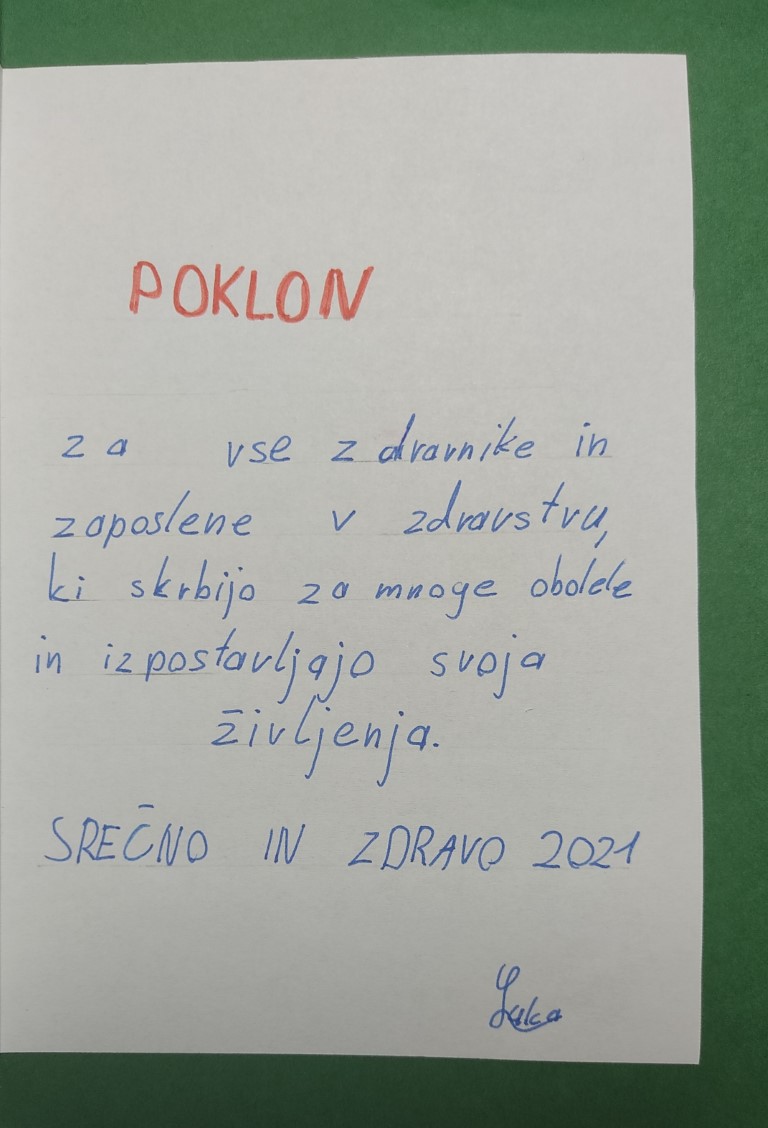 POKLON
za vse zdravnike in
zaposlene v zdravstvu,
ki skrbijo za mnoge obolele
in izpostavljajo svoja
življenja.
SREČNO IN ZDRAVO 2021
Luka